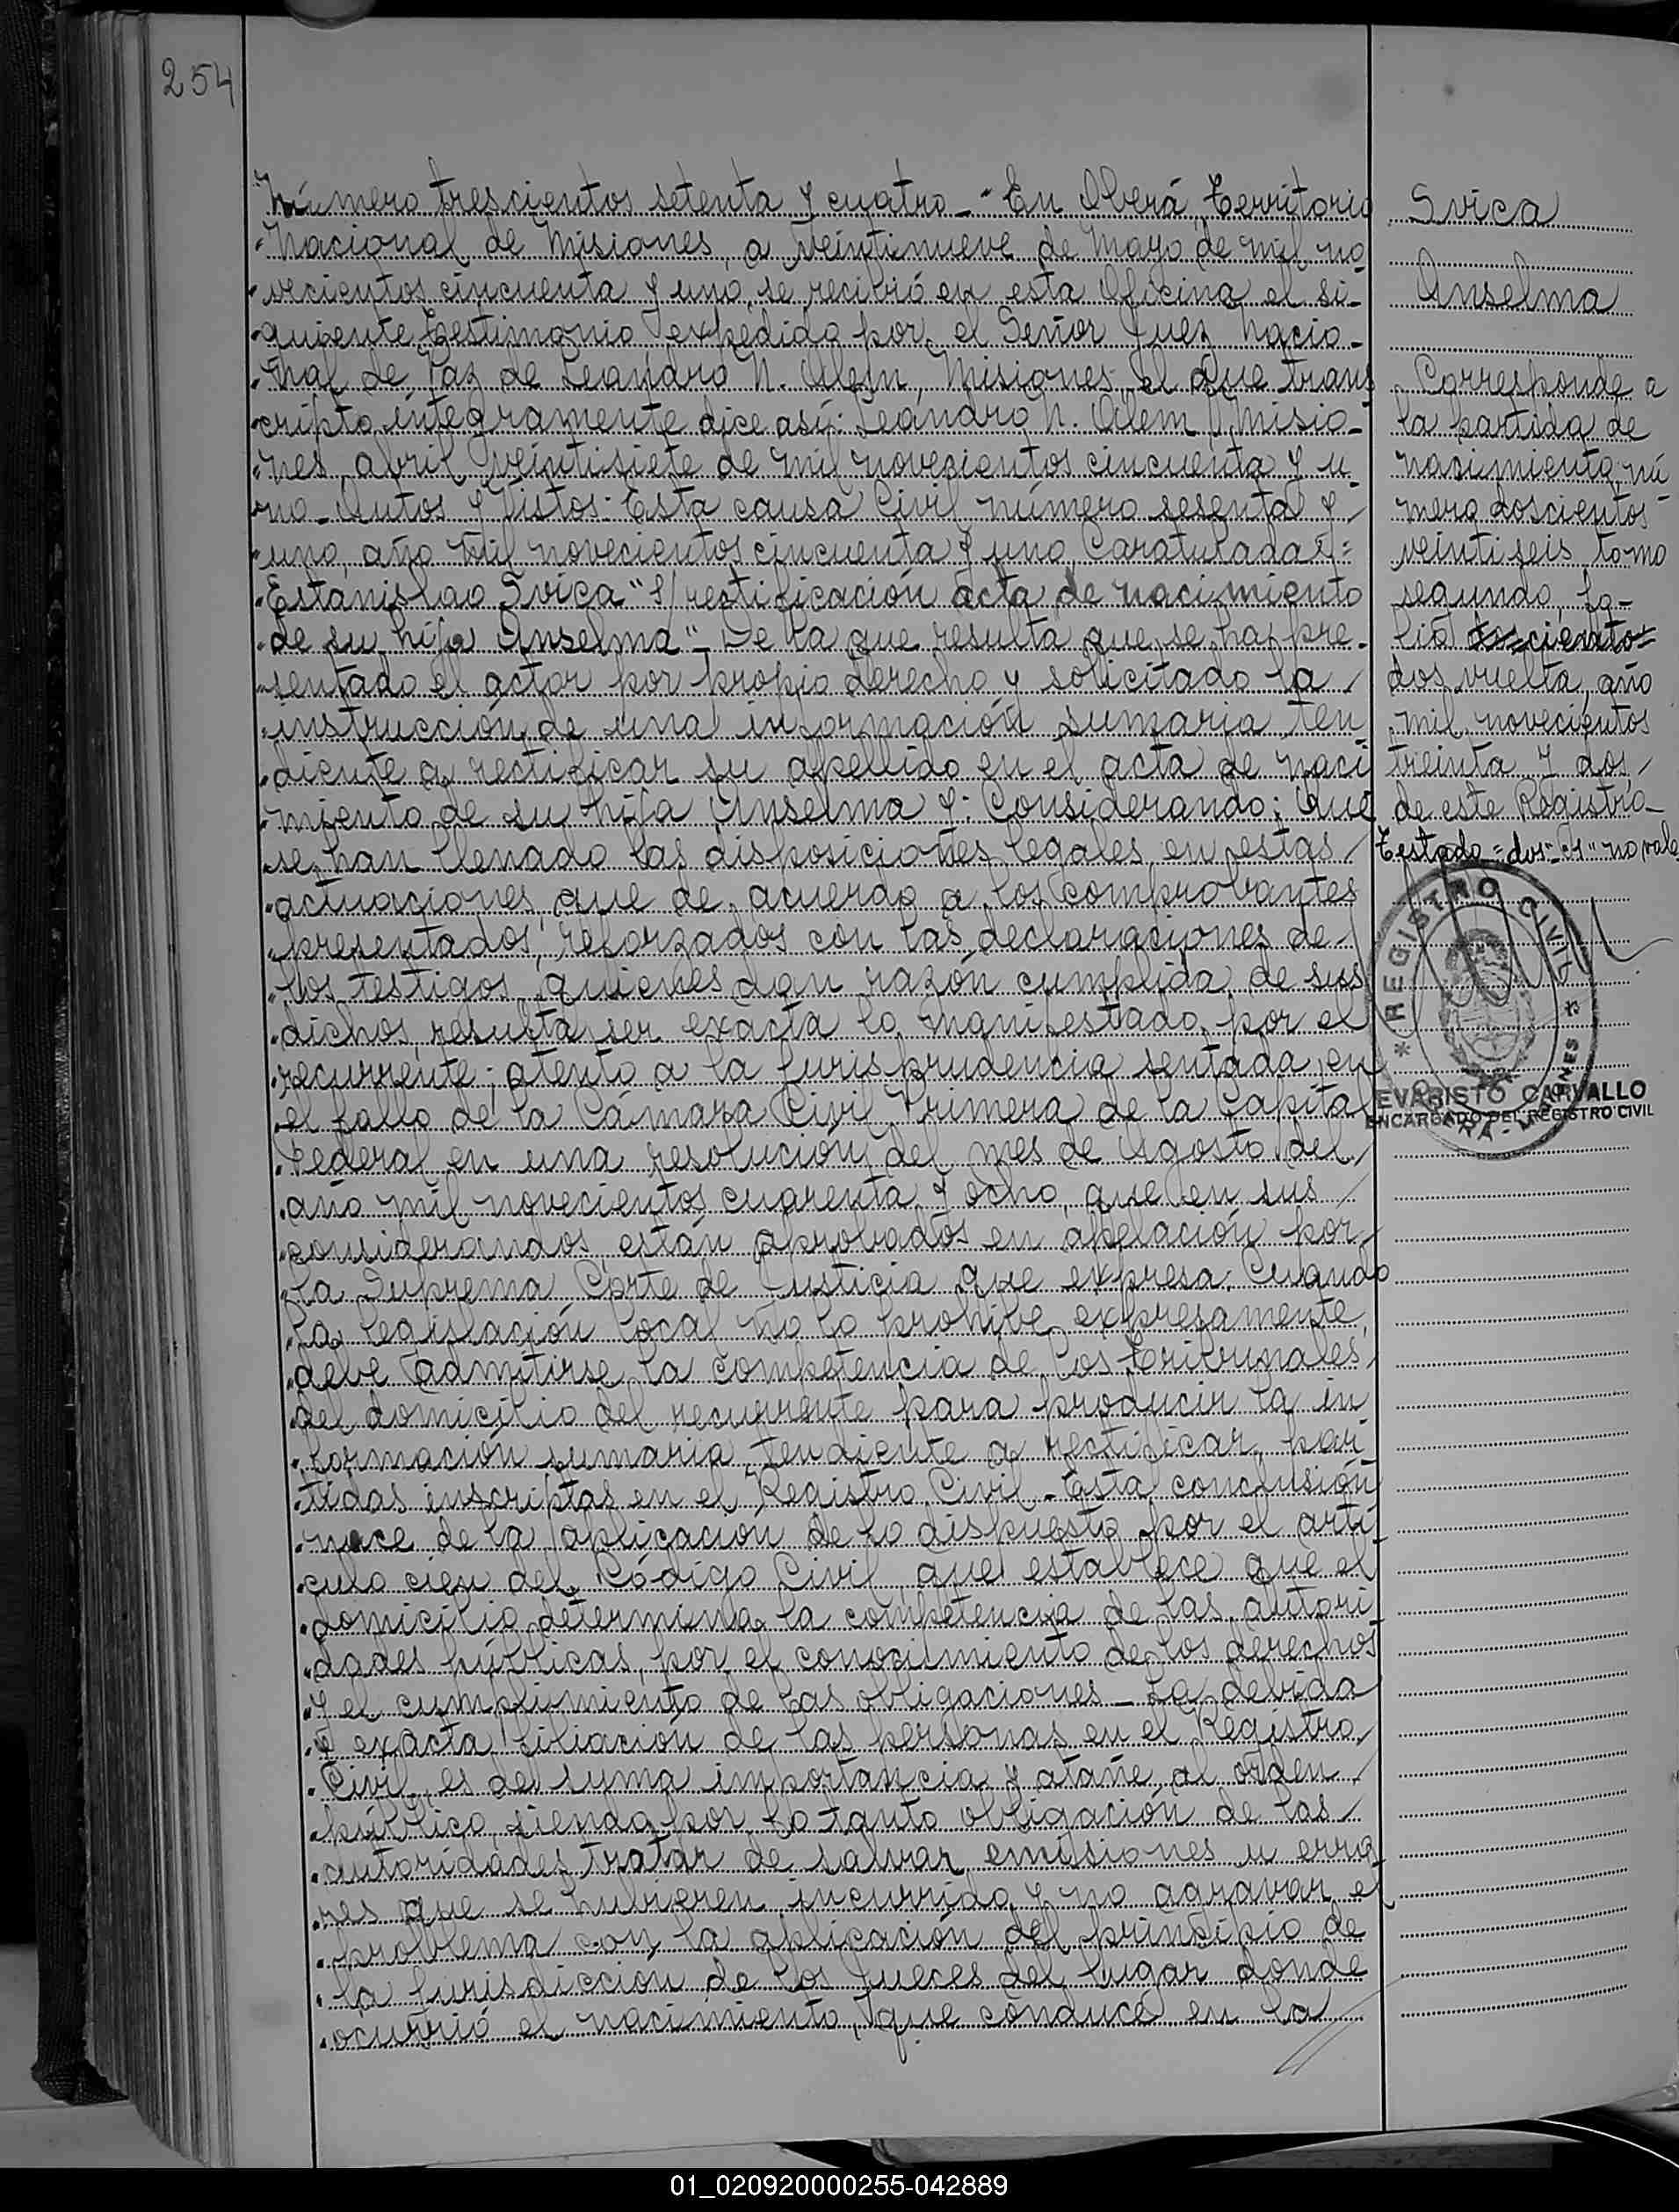 254
Número trescientos setenta y cuatro_ "En Oberá, Territorio
"Nacional de Misiones, a veintinueve de Mayo de mil no
"vecientos cincuenta y uno, se recibió en esta Oficina el si-
"guiente Testimonio expedido por el Señor Juez Nacio-
"nal de Paz de Leandro N. Alem, Misiones, el que trans
"cripto íntegramente dice así: Leandro N. Alem, Misio-
"nes, abril veintisiete de mil novecientos cincuenta y u
"no_ Autos y Vistos: Esta causa Civil número sesenta y
"uno, año mil novecientos cincuenta y uno, Caratulada:
"Estanislao Svica" S/ rectificación acta de nacimiento
"de su hija Anselma"_ De la que resulta que se ha pre-
"sentado el actor por propio derecho y solicitado la
"instrucción de una información sumaria ten
"diente a rectificar su apellido en el acta de naci
"miento de su hija Anselma y: Considerando: Que
"se han llenado las disposiciones legales en estas
"actuaciones, que de acuerdo a los comprobantes
"presentados, reforzados con las declaraciones de
"los testigos, quienes dan razón cumplida de sus
"dichos, resulta ser exacta lo manifestado por el
"recurrente; atento a la jurisprudencia sentada en
"el fallo de la Cámara Civil Primera de la Capital
"Federal en una resolución del mes de Agosto del
"año mil novecientos cuarenta y ocho, que en sus
"considerandos, están aprobados en apelación por
"la Suprema Corte de Justicia que expresa: Cuando
"la legislación local no lo prohibe expresamente,
"debe admitirse la competencia de los tribunales
"del domicilio del recurrente para producir la in
"formación sumaria tendiente a rectificar par
"tidas inscriptas en el Registro Civil_ Esta conclusión
"nace de la aplicación de lo dispuesto por el artí
"culo cien del Código Civil, que establece que el
"domicilio determina la competencia de las autori
"dades públicas, por el conocimiento de los derechos
"y el cumplimiento de las obligaciones_ La debida
"y exacta filiación de las personas en el Registro
"Civil, es de suma importancia y atañe al orden
"público, siendo por lo tanto obligación de las
"autoridades tratar de salvar emisiones u erro
"res que se hubieren incurrido y no agravar el
"problema con la aplicación del principio de
"la jurisdicción de los jueces del lugar donde
"ocurrió el nacimiento, que conduce en la
Svica
Anselma
Corresponde a
la partida de
nacimiento nú
mero doscientos
veintiseis, tomo
segundo, fo-
lio
dos vuelta, año
mil novecientos
treinta y dos,
de este Registro_
Testado = dos-cs" no vale
REGISTRO CIVIL
EVARISTO CARVALLO
ENCARGADO DEL REGISTRO CIVIL
01_020920000255-042889